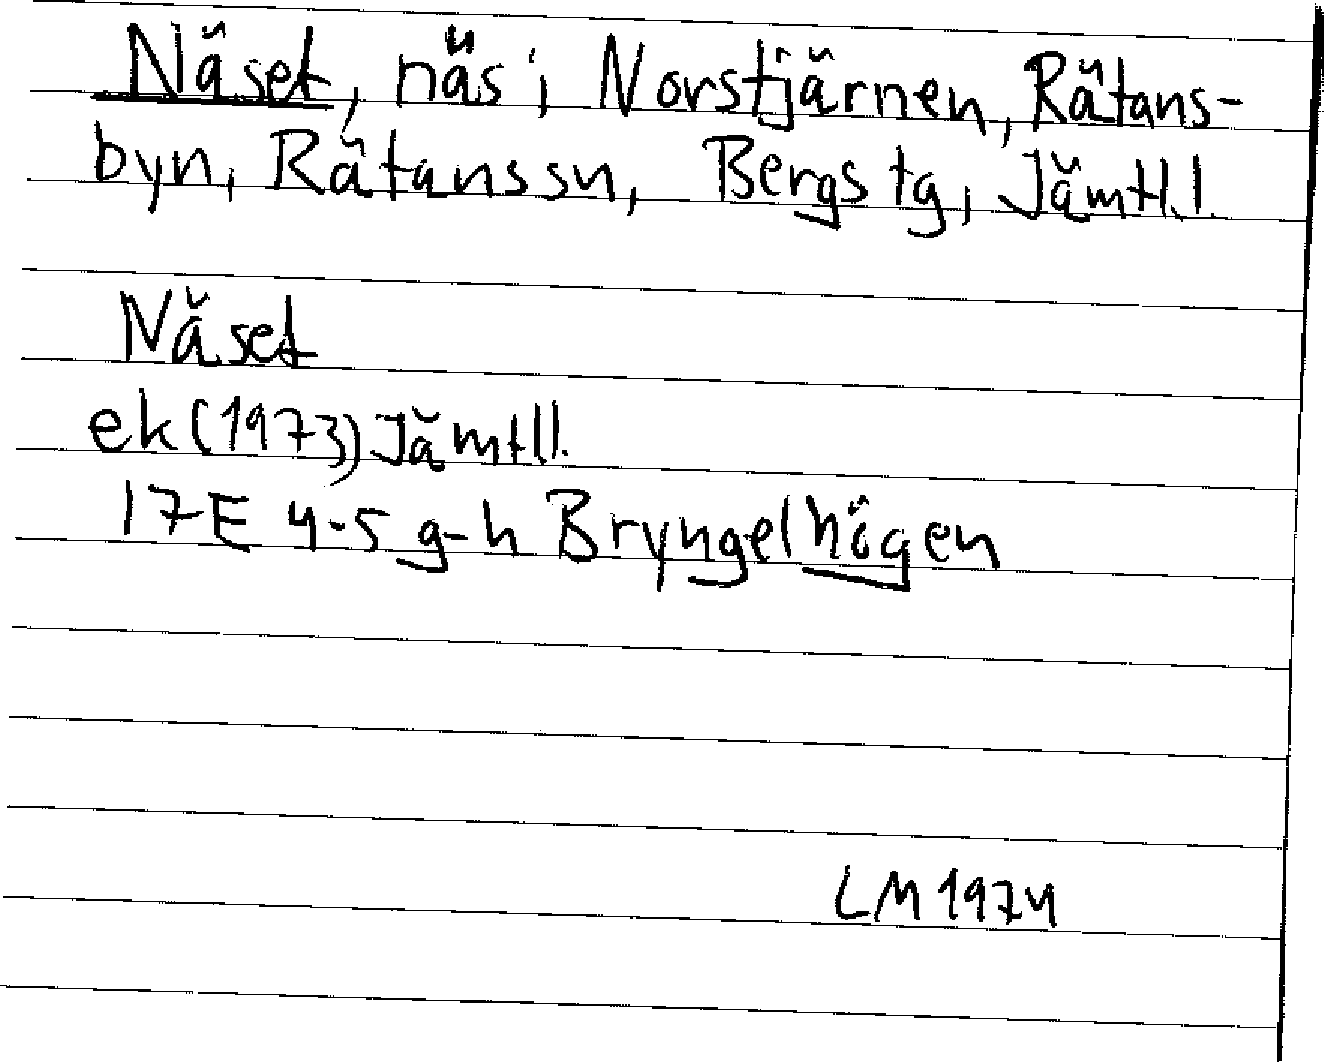 Näset, näs i Norstjärnen, Rätans-
byn, Rätans sn, Bergs tg, Jämtl.l.
Näset
ek (1973) Jämtl l.
17E 4-5 g-h Bryngelhögen
LM 1974